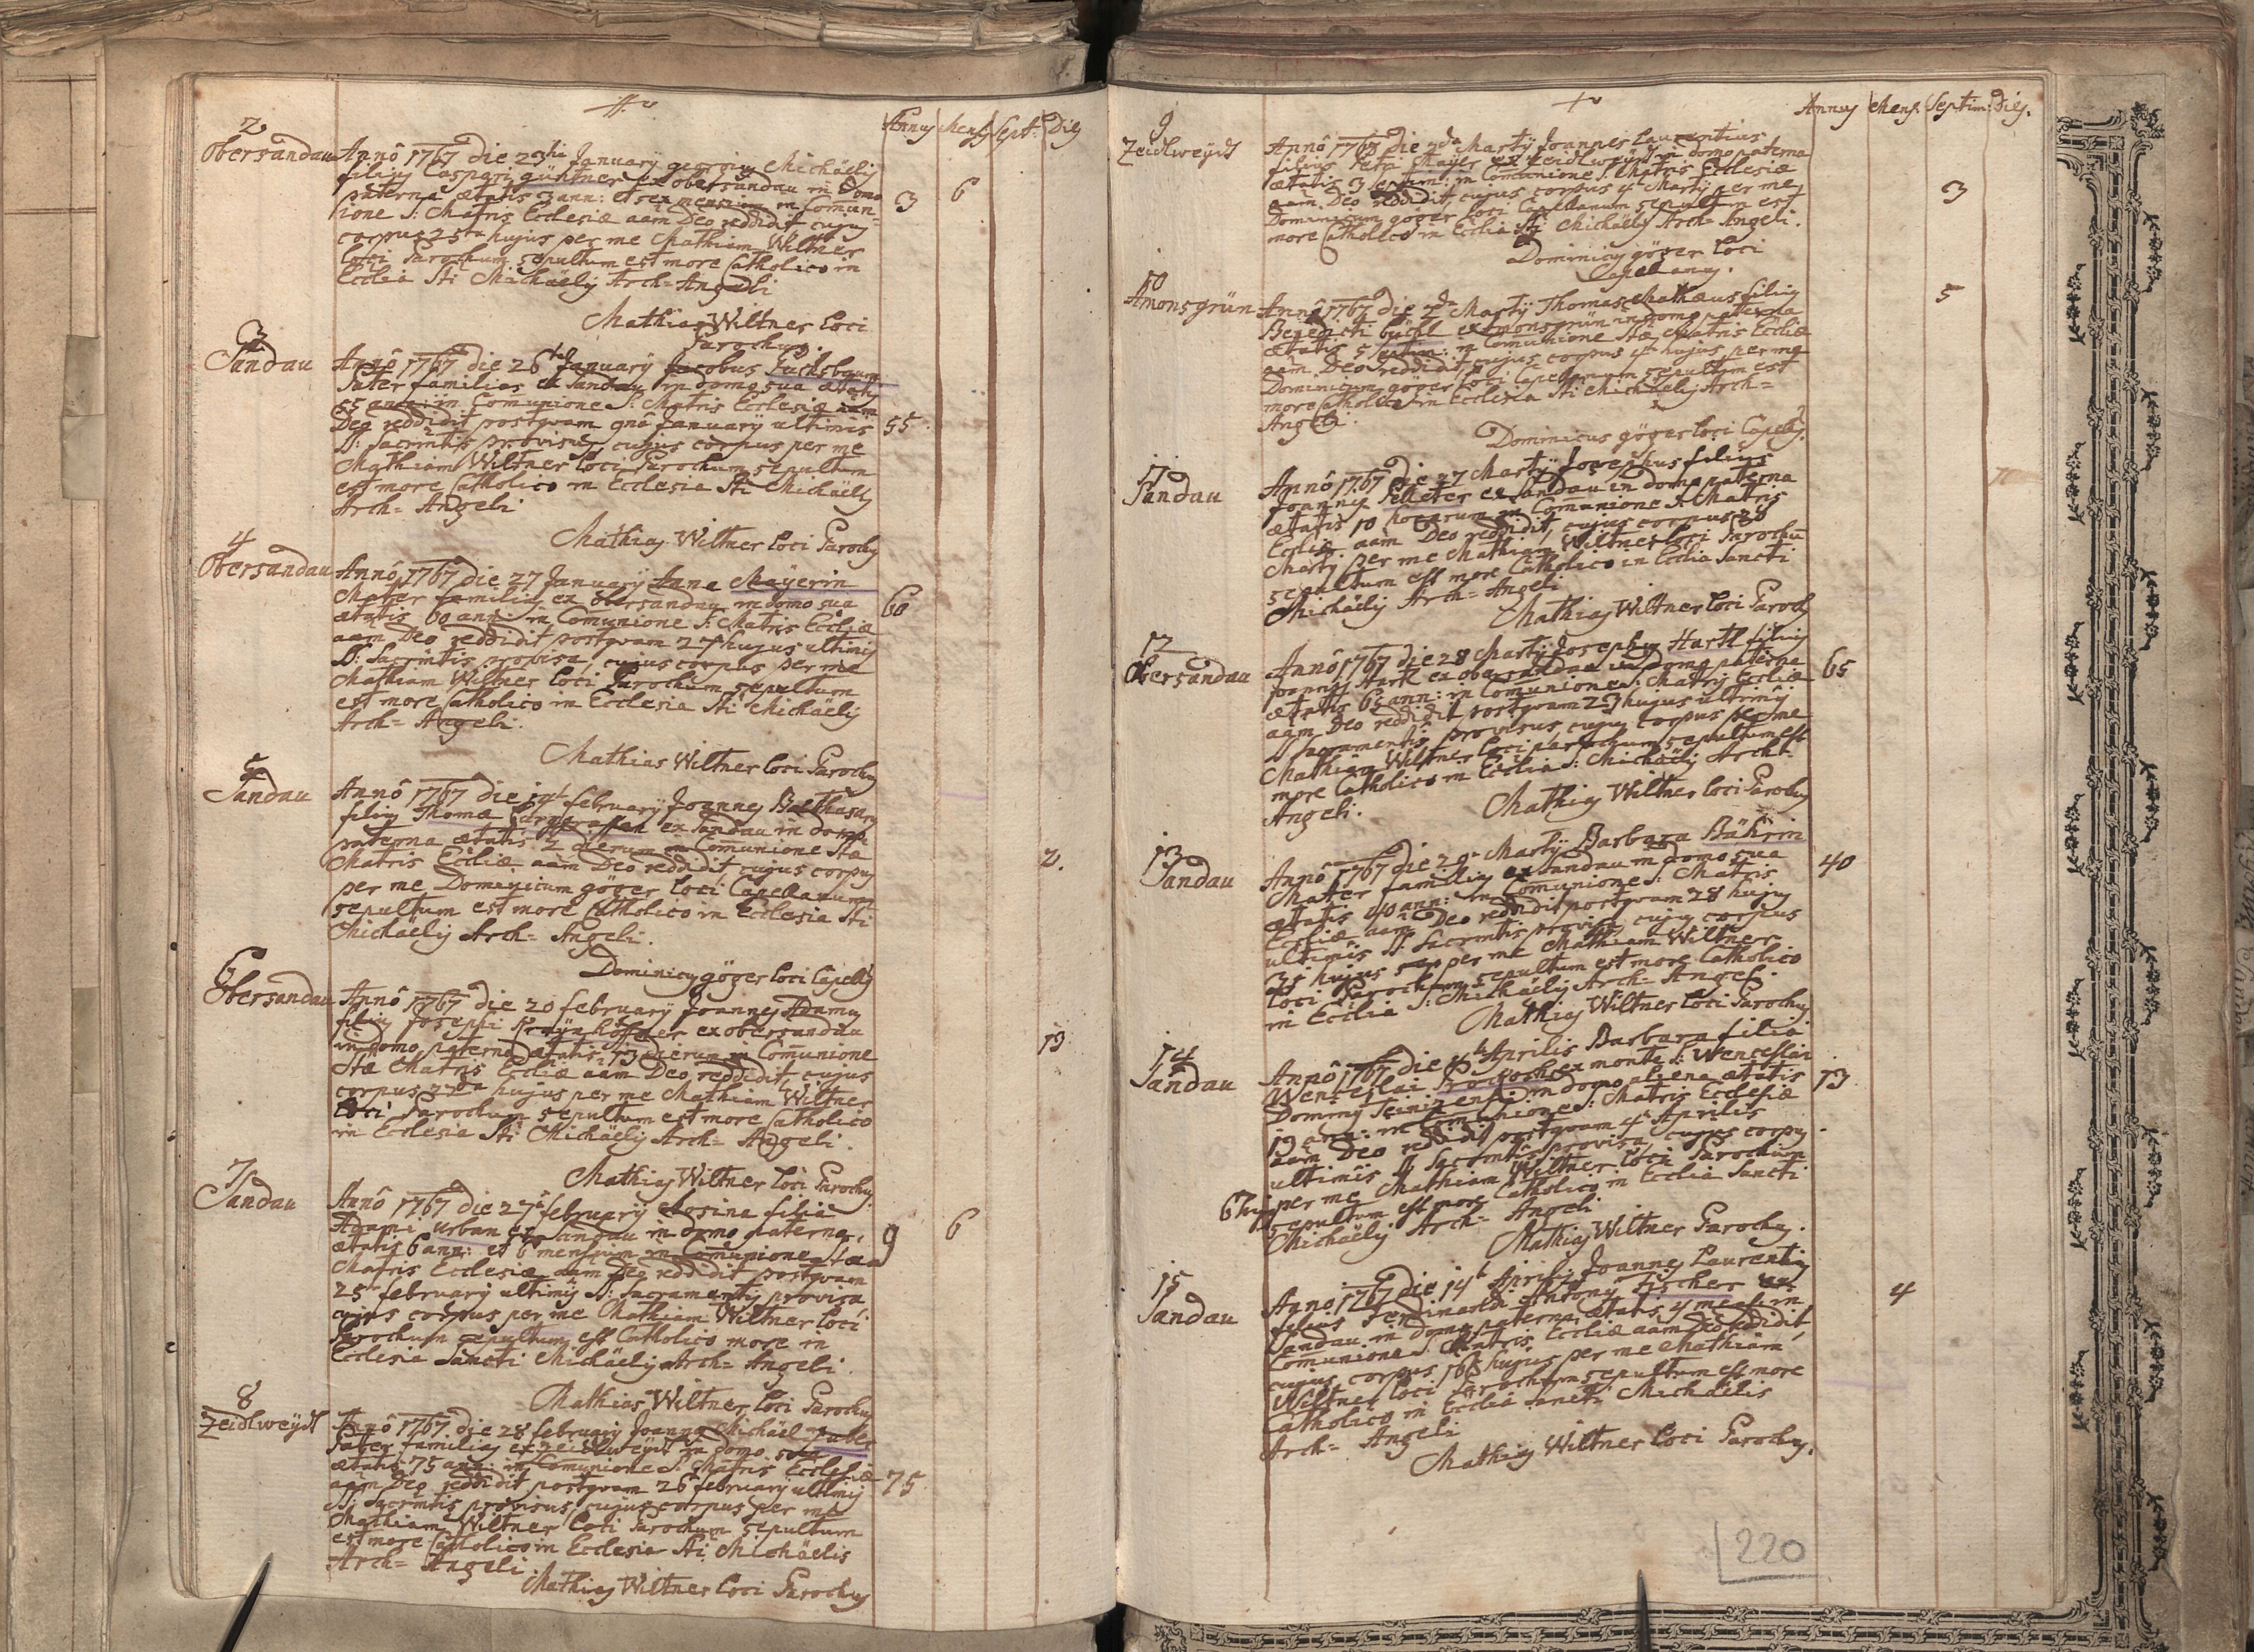 Annus Mens Sept: Dies
2
Obersandau
Annô 1767 die 23tia January georgius Michäelis
filius Caspari günttner ex obersandau in Domo
paterna ætatis 3 ann: et sex mensium in Comun-
ione S: Matris Ecclesiæ aam Deo reddidit cujus
corpus 25ta hujus per me Mathiam Wiltner
loci Parochum sepultum est more Catholico in
Ecclia Sti Michäelis Arch= Angeli
3 6
Mathias Wiltner loci
Parochus.
3
Sandau
Annô 1767 die 26ta January Jacobus Fuchsbaum
Pater familias ex Sandau in domo sua ætatis
55 ann: in Comunione S: Matris Ecclesiæ aam
Deo reddidit postquam January ultimis
SS: Sacrmtis provisus, cujus corpus per me
Mathiam Wiltner loci Parochum sepultum
est more Catholico in Ecclesia Sti Michäelis
Arch= Angeli
55
Mathias Wiltner loci Parochus
4
Obersandau
Annô 1767 die 27 January Anna Mayerin
Mater familias ex obersandau in domo sua
ætatis 60 ann: in Comunione S: Matris Eccliæ
aam Deo reddidit postquam hujus ultimis
SS: Sacrmtis provisa, cujus corpus per me
Mathiam Wiltner loci Parochum sepultum
est more Catholico in Ecclesia Sti Michäelis
Arch= Angeli.
60
Mathias Wiltner loci Parochus
5
Sandau
Annô 1767 die february Joannes Balthasarus
filius Thomæ ex Sandau in domo
paterna ætatis 2 dierum in Comunione Stæ
Matris Eccliæ aam Deo reddidit cujus corpus
per me Dominicum göger loci Capellanum
sepultum est more Catholico in Ecclesia Sti
Michäelis Arch= Angeli.
2.
Dominicus göger loci Capells
6
Obersandau
Annô 1767 die 20 february Joannes Adamus
filius Josephi ex obersandau
in domo paterna ætatis 13 dierum in Comunione
Stæ Matris Eccliæ aam Deo reddidit, cujus
corpus 22da hujus per me Mathiam Wiltner
loci Parochum sepultum est more Catholico
in Ecclesia Sti Michäelis Arch= Angeli.
13
Mathias Wiltner loci Parochus.
7
Sandau
Annô 1767 die 27 february Rosina filia
Adami urban ex Sandau in domo paterna,
ætatis ann: et 6 mensium in Comunione Stæ
Matris Ecclesiæ aam Deo reddidit postquam
25 february ultimis SS: Sacramentis provisa
cujus corpus per me Mathiam Wiltner loci
Parochum sepultum est Catholico more in
Ecclesia Sancti Michäelis Arch= Angeli.
9 6
Mathias Wiltner loci Parochus
8
Zeidlweydt
Annô 1767 die 28 february Joannes Michäel
Pater familias ex zeidlweydt in domo sua
ætatis 75 ann: in Comunione S: Matris Ecclesiæ
aam Deo reddidit postquam 26 february ultimis
SS: Sacrmtis provisus, cujus corpus per me
Mathiam Wiltner loci Parochum sepultum
est more Catholico in Ecclesia Sti Michäelis
Arch= Angeli.
75
Mathias Wiltner loci Parochus
Annus Mens. Septim: Dies.
9
Zeidlweydt
Annô 1767 die 2da Marty Joannes Laurentius
filius Petri Mayer ex zeidlweydt in domo paterna
ætatis 3 septim: in Comunione S: Matris Ecclesiæ
aam Deo reddidit, cujus corpus 4ta Marty per me
Dominicum göger loci Capellanum sepultum est
more Catholico in Ecclia Sti Michäelis Arch= Angeli.
3
Dominicus göger loci
Capellanus.
10
Amonsgrün
Annô 1767 die 2da Marty Thomas Mathæus filius
Benedicti ex Amonsgrün in domo paterna
ætatis 5 septim: in Comunione Stæ Matris Eccliæ
aam Deo reddidit, cujus corpus 4ta hujus per me
Dominicum göger loci Capellanum sepultum est
more Catholico in Ecclesia Sti Michäelis Arch=
Angeli.
5
Dominicus göger loci Capells.
11
Sandau
Annô 1767 die 27 Marty Josephus filius
Joannis ex Sandau in domo paterna
ætatis 10 horarum in Comunione S: Matris
Eccliæ aam Deo reddidit, cujus corpus 28
Marty per me Mathiam Wiltner loci Parochu
sepultum est more Catholico in Ecclia Sancti
Michäelis Arch= Angeli
Mathias Wiltner loci Paroch
12
Obersandau
Annô 1767 die 28 Marty Josephus Hartl filius
Joannis Hartl ex obersandau in domo paterna
ætatis 65 ann: in Comunione S: Matris Eccliæ
aam Deo reddidit postquam 23 hujus ultimis
SS Sacramentis provisus, cujus corpus per me
Mathiam Wiltner loci parochum sepultum est
more Catholico in Ecclia S: Michäelis Arch=
Angeli.
65
Mathias Wiltner loci Parochus
13
Sandau
Annô 1767 die 29 Marty Barbara Bährin
Mater familias ex Sandau in domo sua
ætatis 40 ann: in Comunione S: Matris
Eccliæ aam Deo reddidit postquam 28 hujus
ultimis SS Sacrmtis provisa, cujus corpus
31 hujus per me Mathiam Wiltner
loci Parochum sepultum est more Catholico
in Ecclia S: Michäelis Arch= Angeli.
40
Mathias Wiltner loci Parochus
14
Sandau
Annô 1767 die Aprilis Barbara filia
Wenceslai ex monte S: Wenceslai
in domo aliena ætatis
13 ann: in Comunione S: Matris Ecclesiæ
aam Deo reddidit postquam 4ta Aprilis
ultimis SS Sacrmtis provisa, cujus corpus
6 hujus per me Mathiam Wiltner loci Parochum
sepultum est more Catholico in Ecclia Sancti
Michäelis Arch= Angeli
13
Mathias Wiltner Parochus.
15
Sandau
Anno 1767 die 14ta Aprilis Joannes Laurentius
filius Ferdinandi Antony Fischer ex
Sandau in domo paterna ætatis 4 mens: in
Comunione S. Matris Eccliæ aam Deo reddidit,
cujus corpus 16ta hujus per me Mathiam
Wiltner loci Parochum sepultum est more
Catholico in Ecclia Sancti Michäelis
Arch= Angeli
4
Mathias Wiltner loci Parochus.
220